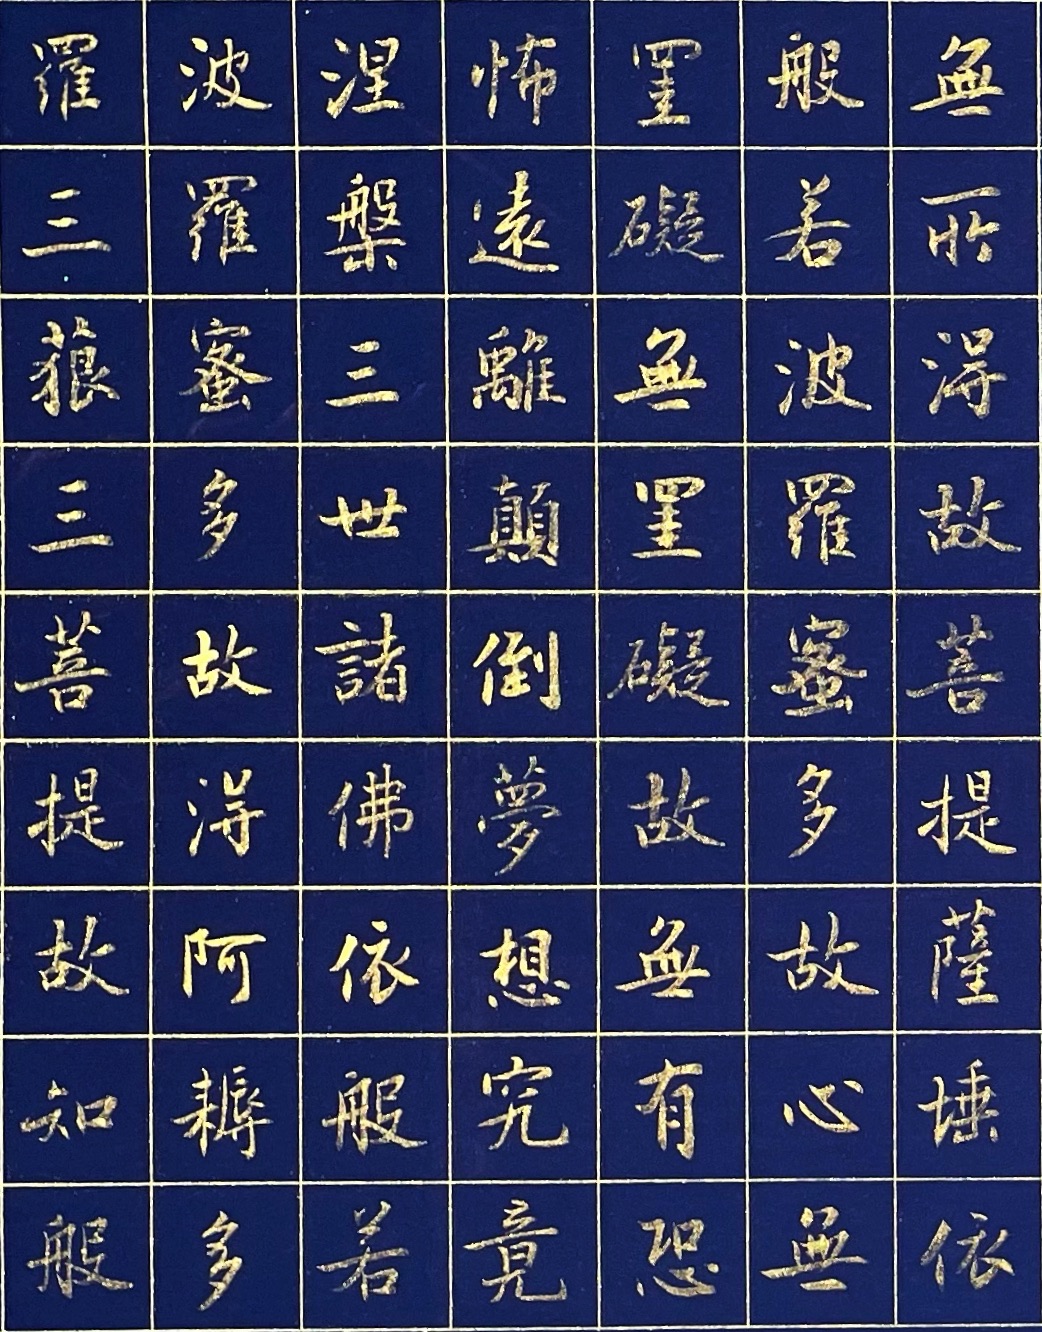 無所得故菩提薩埵依
般若波羅蜜多故心無
罣礙無罣礙故無有恐
怖遠離顛倒夢想究竟
涅槃三世諸佛依般若
波羅蜜多故得阿耨多
羅三藐三菩提故知般